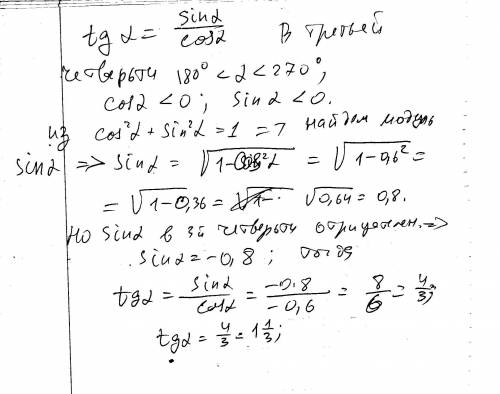 tg α = sinα / cosα В третьей
четверти 180° < α < 270°,
cosα < 0 ; sinα < 0.
из cos²α + sin²α = 1 => найдем модуль
sinα => sinα = √(1-cos²α) = √(1-0,6²) =
= √(1-0,36) = √0,64 = 0,8.
Но sinα в 3й четверти отрицателен. =>
sinα = -0,8 ; тогда
tgα = sinα / cosα = -0.8 / -0,6 = 8/6 = 4/3;
tgα = 4/3 = 1 1/3;